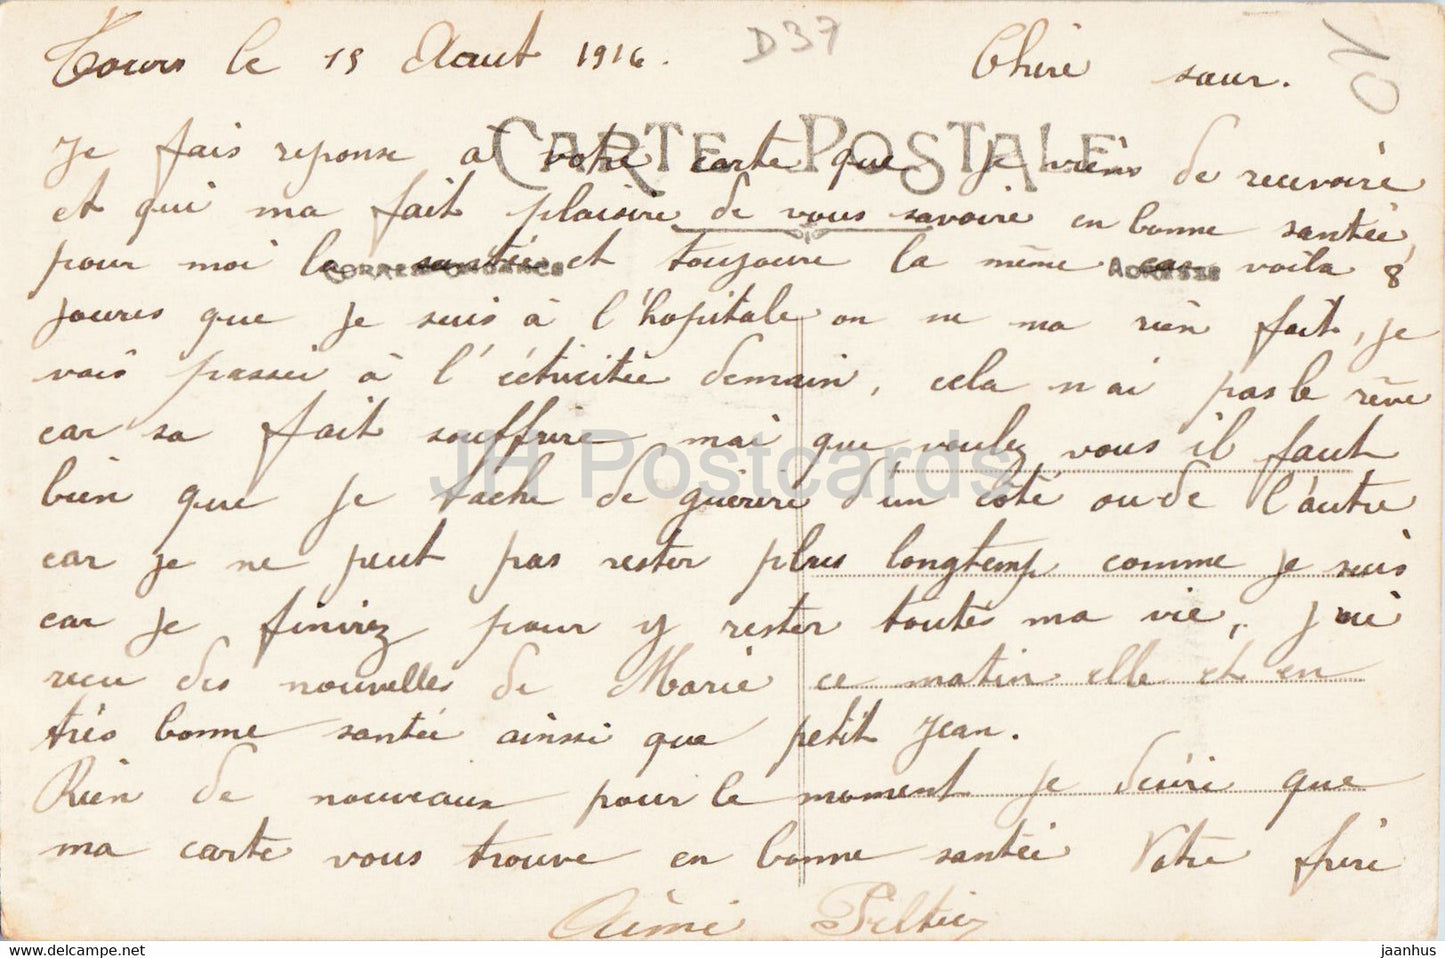 Tours le 19 Aout 1916. D37 Chère sœur. 10
CARTE POSTALE
Je fais reponse a votre carte que je viens de recevoire
et qui ma fait plaisire de vous savoire en bonne santée,
pour moi la santée et toujoure la même car voila 8
CORRESPONDANCE ADRESSE
joures que je suis à l'hopitale on ne ma rien fait, je
vais passer à l'éctricitée demain, cela n ai pas le rêve
car sa fait souffrire mai que voulez vous il faut
JH Postcards
bien que je tache de guérire d'un côté ou de l'autre
car je ne peut pas rester plus longtemp comme je suis
car je finirez pour y rester toutes ma vie, j'ai
recu des nouvelles de Marie ce matin elle et en
très bonne santée ainssi que petit Jean.
Rien de nouveaux pour le moment je désire que
ma carte vous trouve en bonne santée Votre frère
Aimé Peltier
www.delcampe.net jaanhus